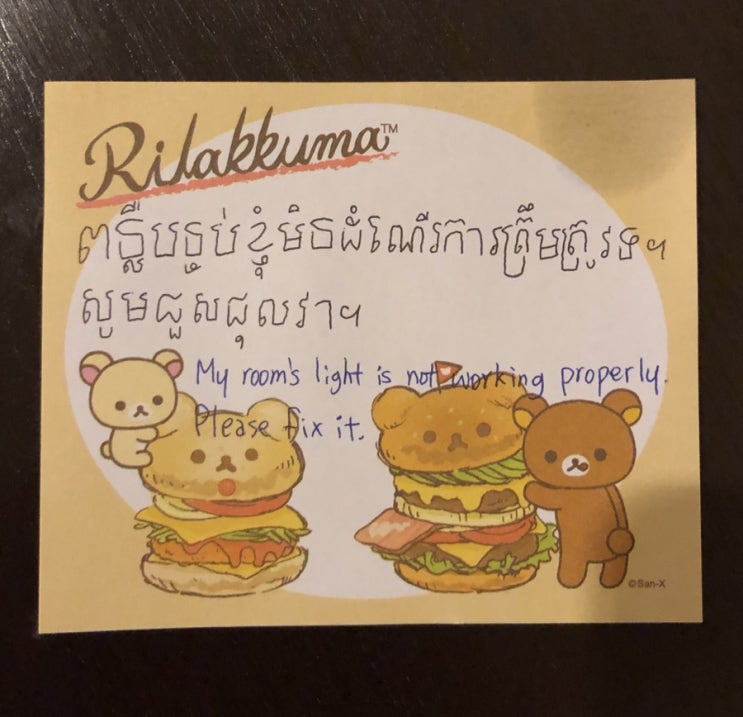 Rilakkuma™
ពន្លឺបន្ទប់ខ្ញុំមិនដំណើរការត្រឹមត្រូវទ។
សូមជួសជុលវា។
My room's light is not working properly.
Please fix it.
©San-X